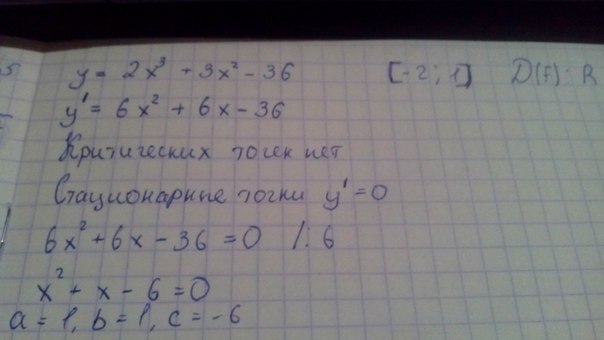 y = 2x³ + 3x² - 36 [-2; 1] D(f): R
y' = 6x² + 6x - 36
Критических точек нет
Стационарные точки y' = 0
6x² + 6x - 36 = 0 /: 6
x² + x - 6 = 0
a = 1, b = 1, c = -6